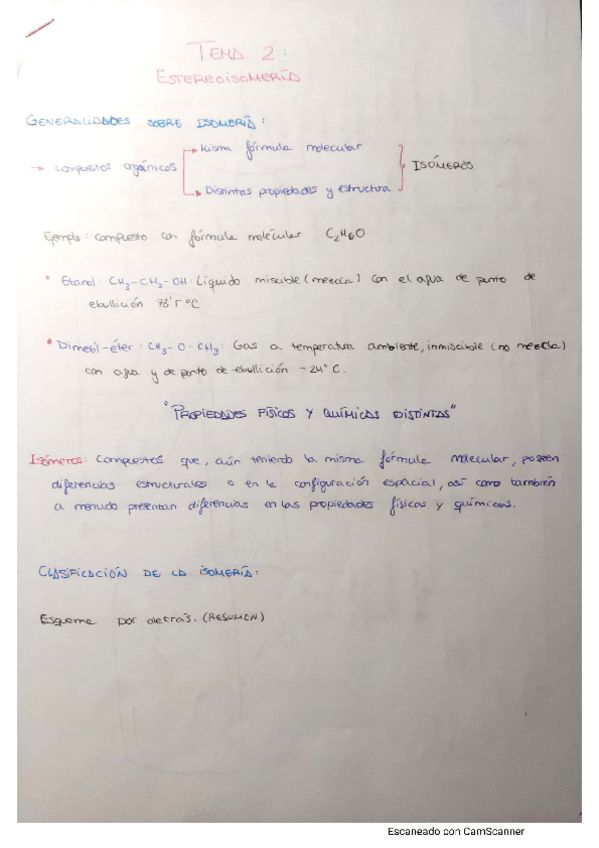 TEMA 2:
ESTEREOISOMERÍA
GENERALIDADES SOBRE ISOMERÍA:
→ compuestos orgánicos
Misma fórmula molecular
Distintas propiedades y estructura
ISÓMEROS
Ejemplo: compuesto con fórmula molecular C₂H₆O
• Etanol: CH₃-CH₂-OH: Líquido miscible (mezcla) con el agua de punto de
ebullición 78'5 °C
• Dimetil-éter: CH₃-O-CH₃: Gas a temperatura ambiente, inmiscible (no mezcla)
con agua y de punto de ebullición -24°C.
"PROPIEDADES FÍSICAS Y QUÍMICAS DISTINTAS"
Isómeros: Compuestos que, aún teniendo la misma fórmula molecular, poseen
diferencias estructurales o en la configuración espacial, así como también
a menudo presentan diferencias en las propiedades físicas y químicas.
CLASIFICACIÓN DE LA ISOMERÍA:
Esquema por detrás. (RESUMEN)
Escaneado con CamScanner